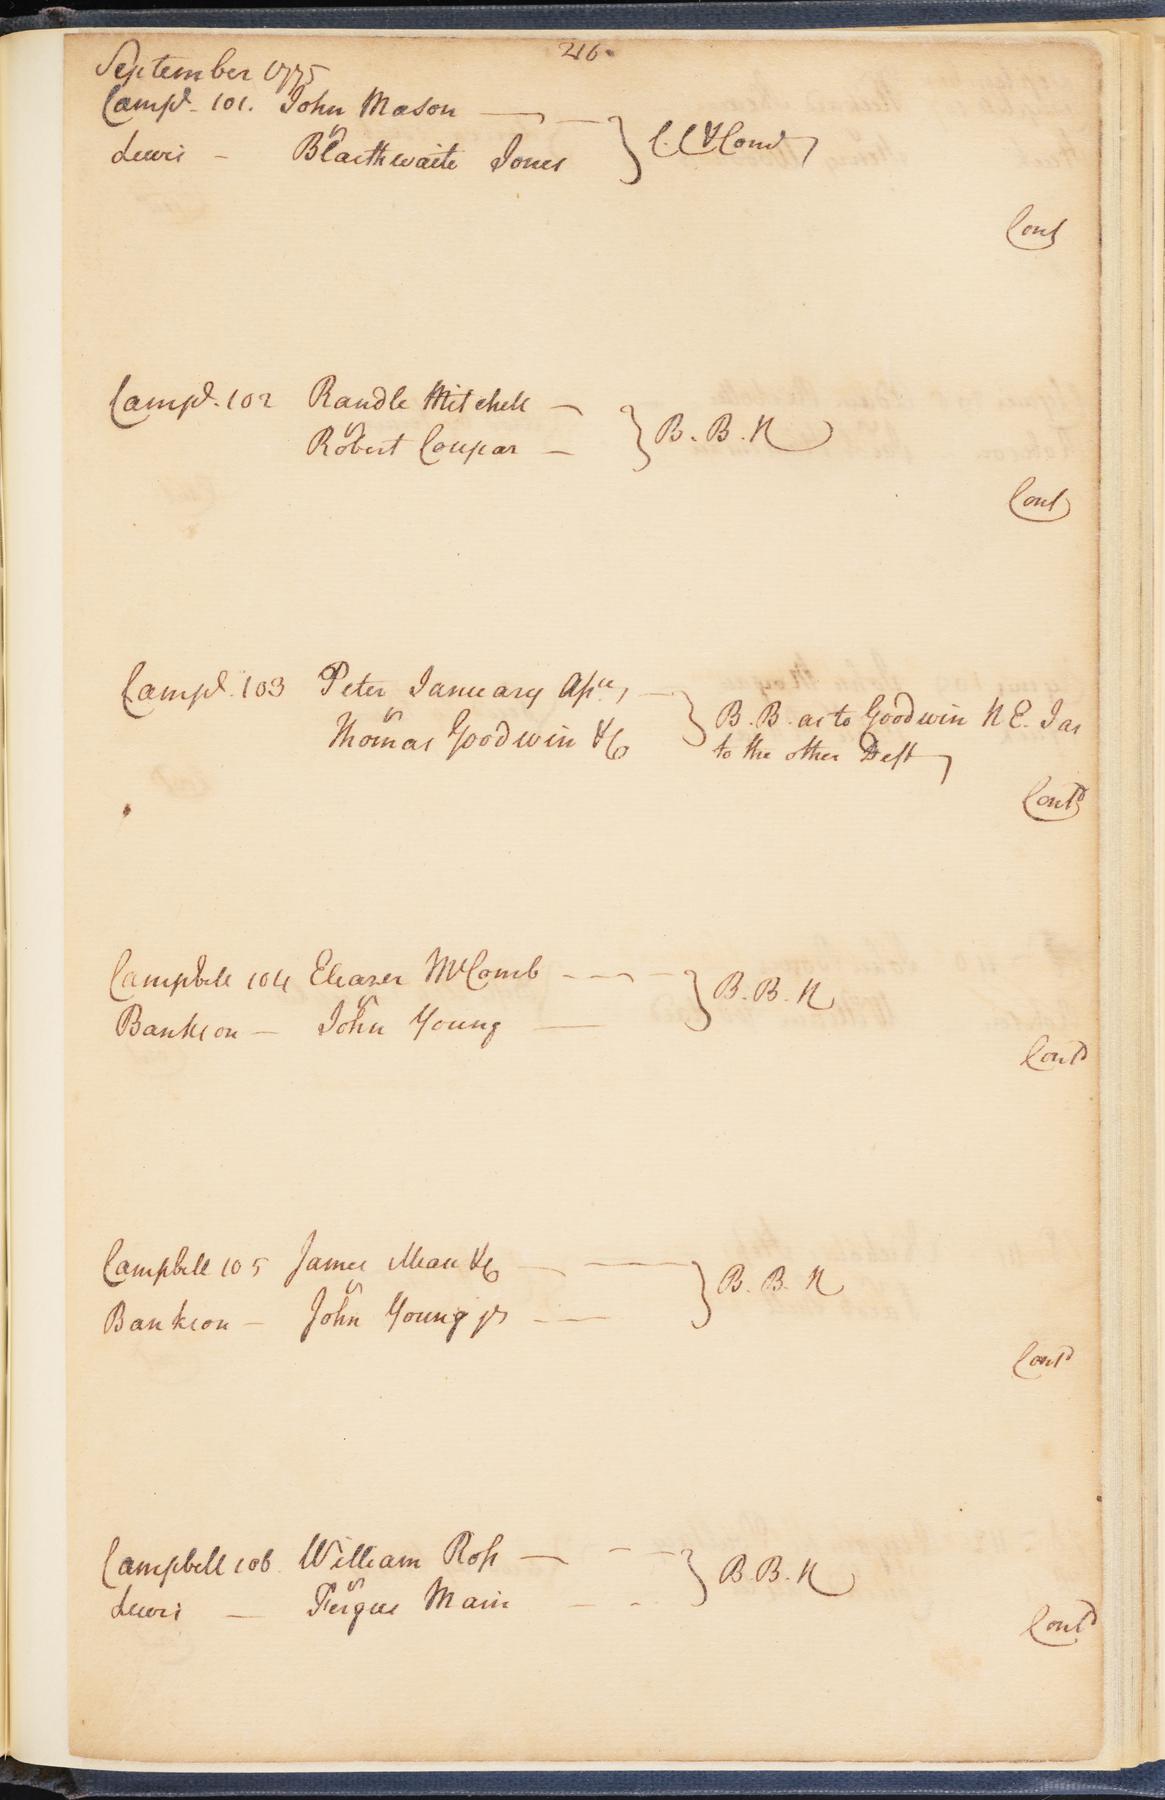 216.
September 1775
Campl. 101. John Mason
vs
Lewis - Blaithwaite Jones } C. C & Cond
Cont
Campl. 102 Randle Mitchell
vs
Robert Coupar } B. B. N
Cont
Campl. 103 Peter January Assee
vs
Thomas Goodwin &c } B. B. as to Goodwin N E. I as
to the other Deft
Contd
Campbell 104 Eleazer McComb
vs
Bankson - John Young } B. B. N
Contd
Campbell 105 James Mease &c
vs
Bankson - John Young jr } B. B. N
Contd
Campbell 106 William Ross
vs
Lewis - Fergus Main } B. B. N
Contd